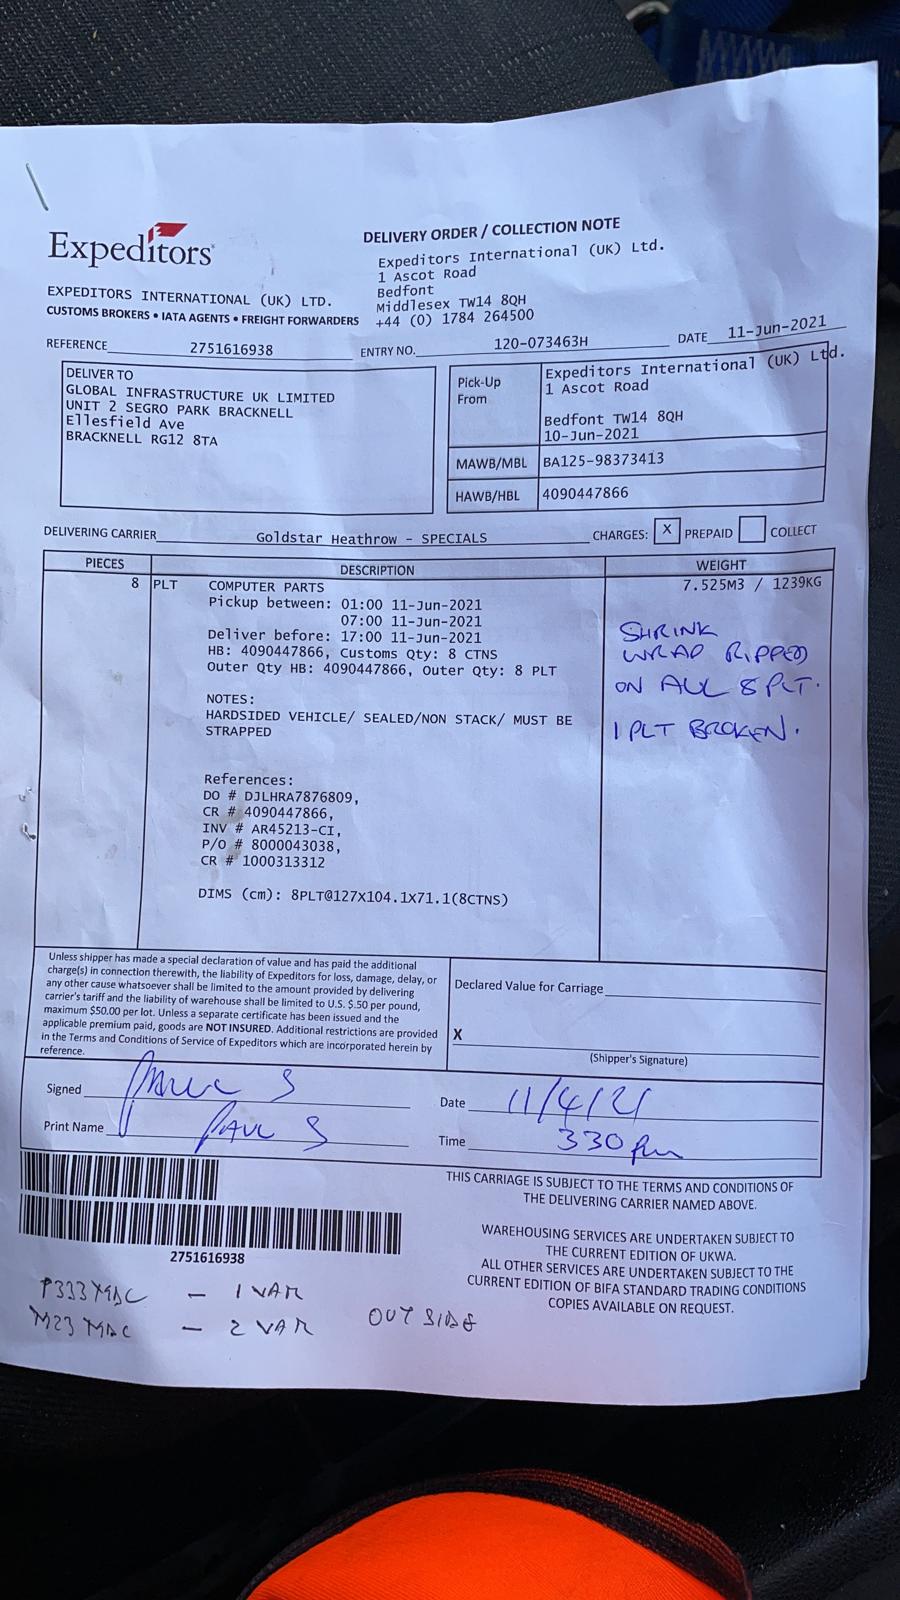 Expeditors
DELIVERY ORDER / COLLECTION NOTE
Expeditors International (UK) Ltd.
1 Ascot Road
Bedfont
Middlesex TW14 8QH
+44 (0) 1784 264500
EXPEDITORS INTERNATIONAL (UK) LTD.
CUSTOMS BROKERS • IATA AGENTS • FREIGHT FORWARDERS
REFERENCE 2751616938 ENTRY NO. 120-073463H DATE 11-Jun-2021
DELIVER TO
GLOBAL INFRASTRUCTURE UK LIMITED
UNIT 2 SEGRO PARK BRACKNELL
Ellesfield Ave
BRACKNELL RG12 8TA
Pick-Up From
Expeditors International (UK) Ltd.
1 Ascot Road
Bedfont TW14 8QH
10-Jun-2021
MAWB/MBL BA125-98373413
HAWB/HBL 4090447866
DELIVERING CARRIER Goldstar Heathrow - SPECIALS CHARGES: X PREPAID COLLECT
PIECES DESCRIPTION WEIGHT
8 PLT COMPUTER PARTS 7.525M3 / 1239KG
Pickup between: 01:00 11-Jun-2021
07:00 11-Jun-2021
Deliver before: 17:00 11-Jun-2021
HB: 4090447866, Customs Qty: 8 CTNS
Outer Qty HB: 4090447866, Outer Qty: 8 PLT
NOTES:
HARDSIDED VEHICLE/ SEALED/NON STACK/ MUST BE
STRAPPED
SHRINK
WRAP RIPPED
ON ALL 8 PLT.
1 PLT BROKEN.
References:
DO # DJLHRA7876809,
CR # 4090447866,
INV # AR45213-CI,
P/O # 8000043038,
CR # 1000313312
DIMS (cm): 8PLT@127X104.1X71.1(8CTNS)
Unless shipper has made a special declaration of value and has paid the additional
charge(s) in connection therewith, the liability of Expeditors for loss, damage, delay, or
any other cause whatsoever shall be limited to the amount provided by delivering
carrier's tariff and the liability of warehouse shall be limited to U.S. $.50 per pound,
maximum $50.00 per lot. Unless a separate certificate has been issued and the
applicable premium paid, goods are NOT INSURED. Additional restrictions are provided
in the Terms and Conditions of Service of Expeditors which are incorporated herein by
reference.
Declared Value for Carriage
X
(Shipper's Signature)
Signed
Date 11/4/21
Print Name PAUL S
Time 330 pm
THIS CARRIAGE IS SUBJECT TO THE TERMS AND CONDITIONS OF
THE DELIVERING CARRIER NAMED ABOVE.
WAREHOUSING SERVICES ARE UNDERTAKEN SUBJECT TO
THE CURRENT EDITION OF UKWA.
ALL OTHER SERVICES ARE UNDERTAKEN SUBJECT TO THE
CURRENT EDITION OF BIFA STANDARD TRADING CONDITIONS
COPIES AVAILABLE ON REQUEST.
2751616938
- 1 VAR
- 2 VAR OUTSIDE